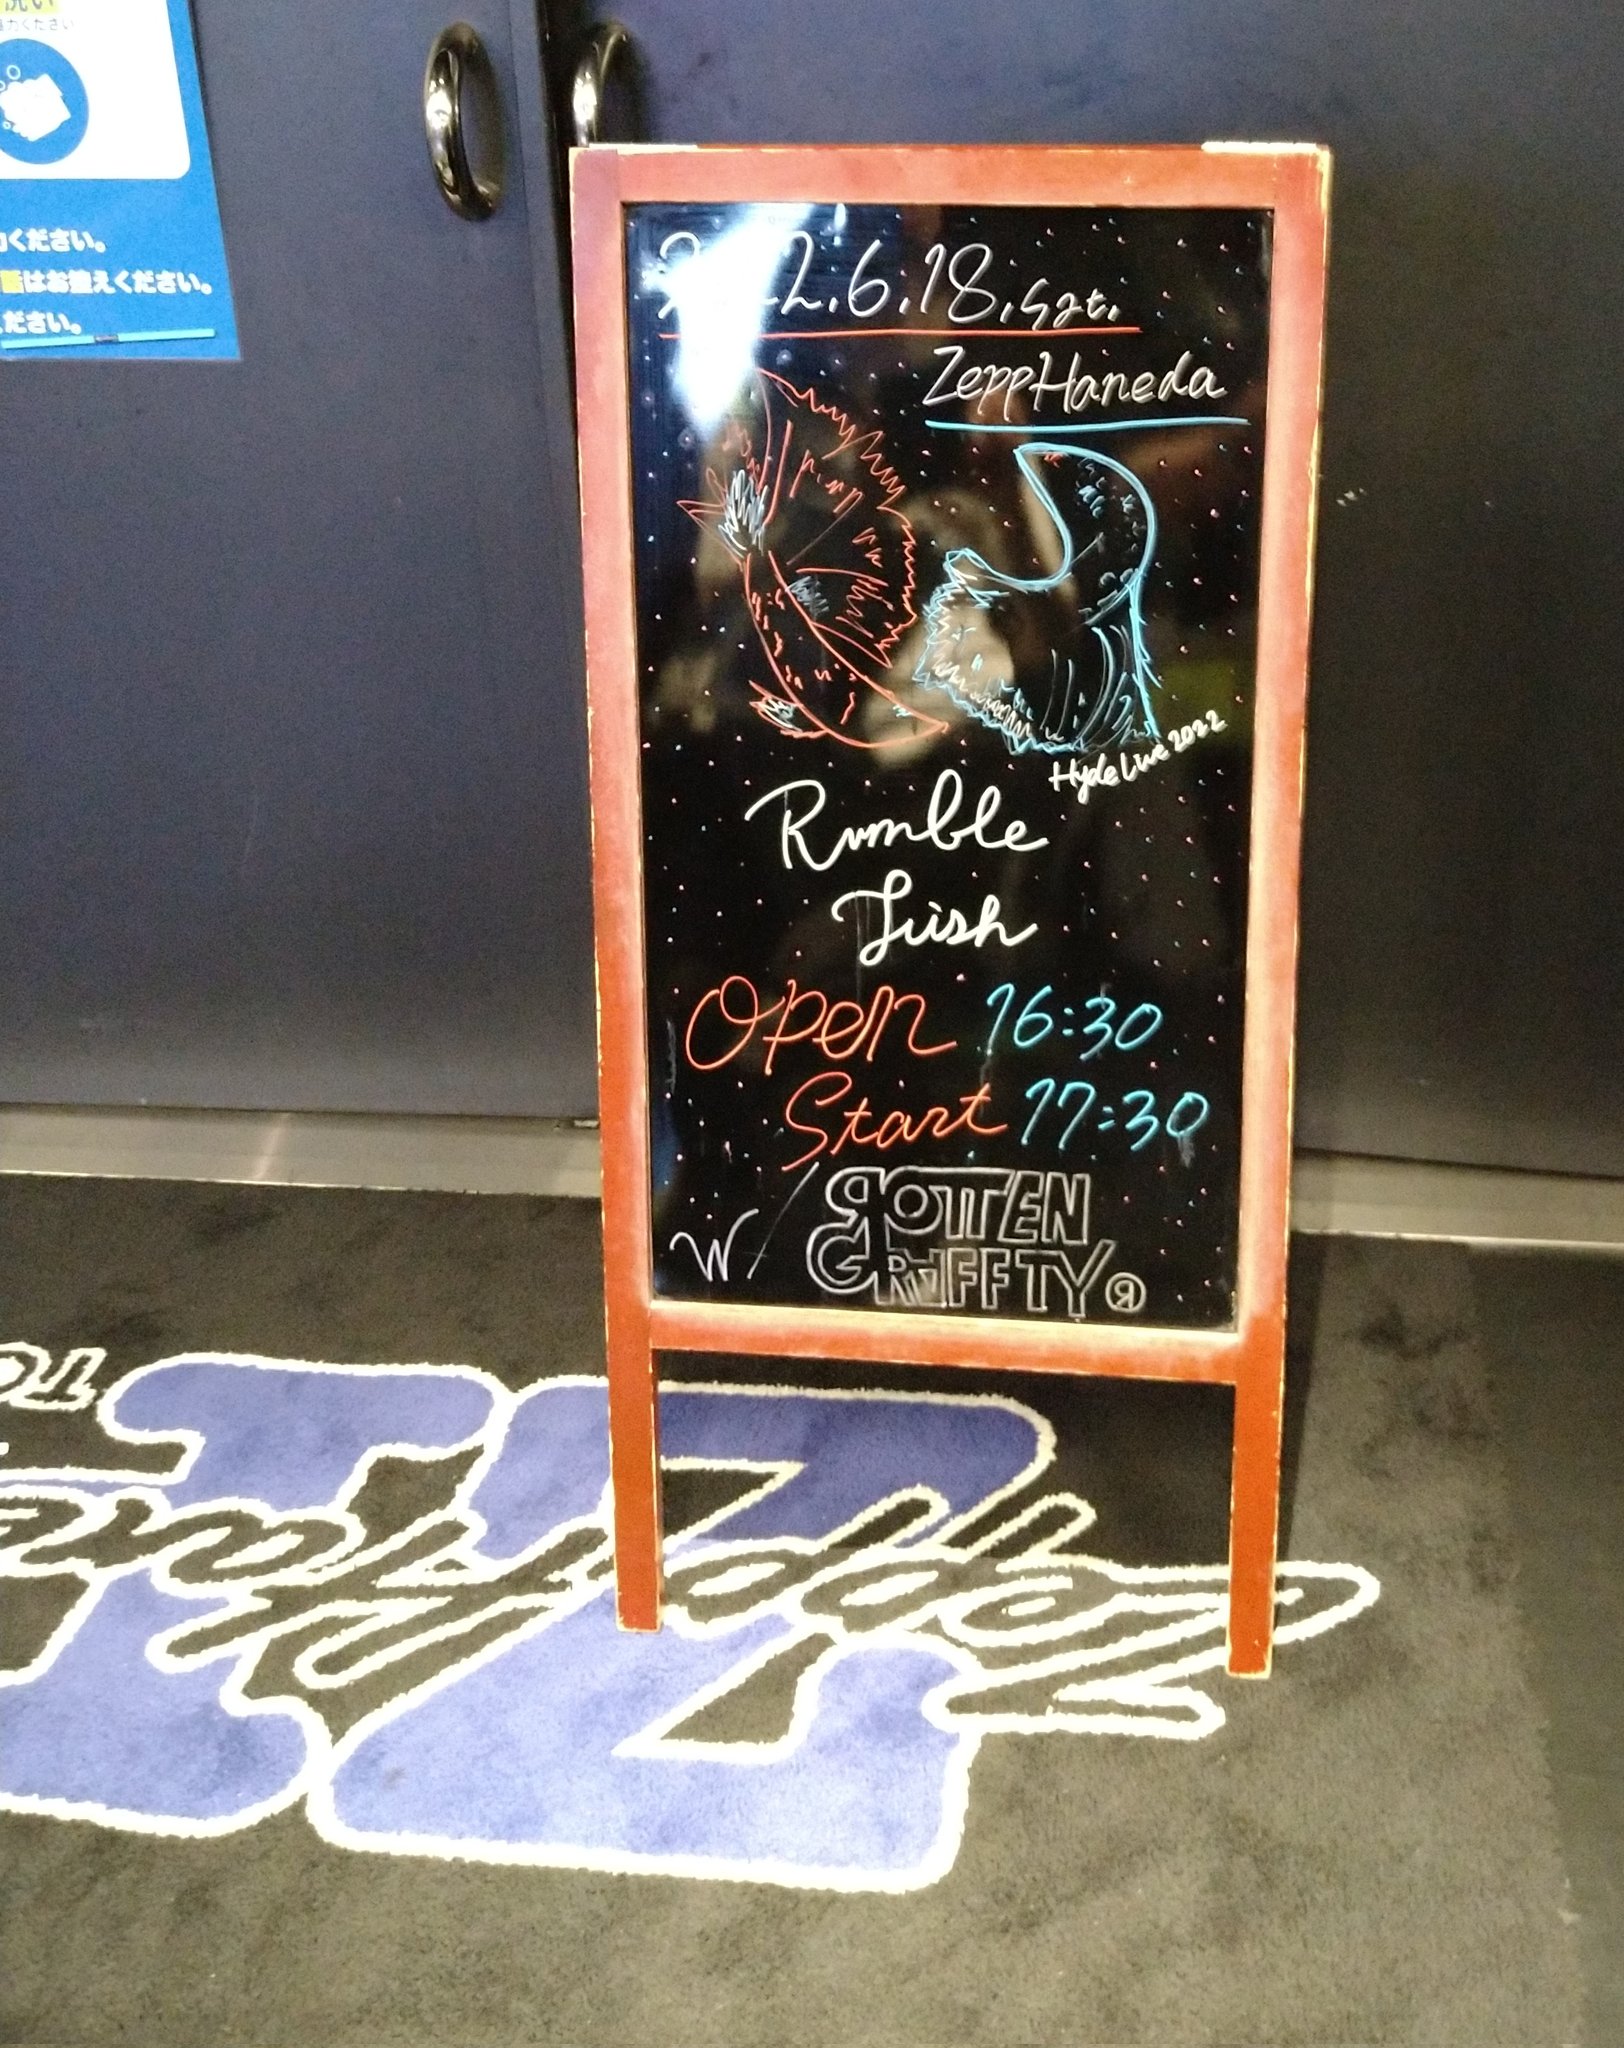 洗い
力ください
力ください。
話はお控えください。
ください。
2022.6.18.Sat.
ZeppHaneda
Hyde Live 2022
Rumble
Fish
Open 16:30
Start 17:30
W/ ROTTEN
GRAFFTY R
Zepp Haneda
TO